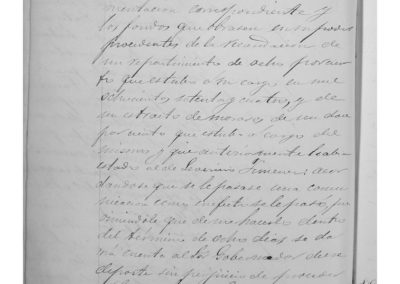 mentacion correspondiente y
los fondos que obrasen en su poder
procedentes de la recaudacion de
un repartimiento de ocho por cien
to que estaba a su cargo, en mil
ochocientos setenta y cuatro, y de
un estracto de morosos de un doce
por ciento que estaba a cargo del
mismo y que anteriormente habia
estado al de Severino Jimenez; acor
dandose que se le pasase una comu
nicacion como en efecto se le paso, pre
viniendole que de no hacerlo dentro
del término de ocho dias se da
rá cuenta al Sr Gobernador de
deporte sin perjuicio de proceder